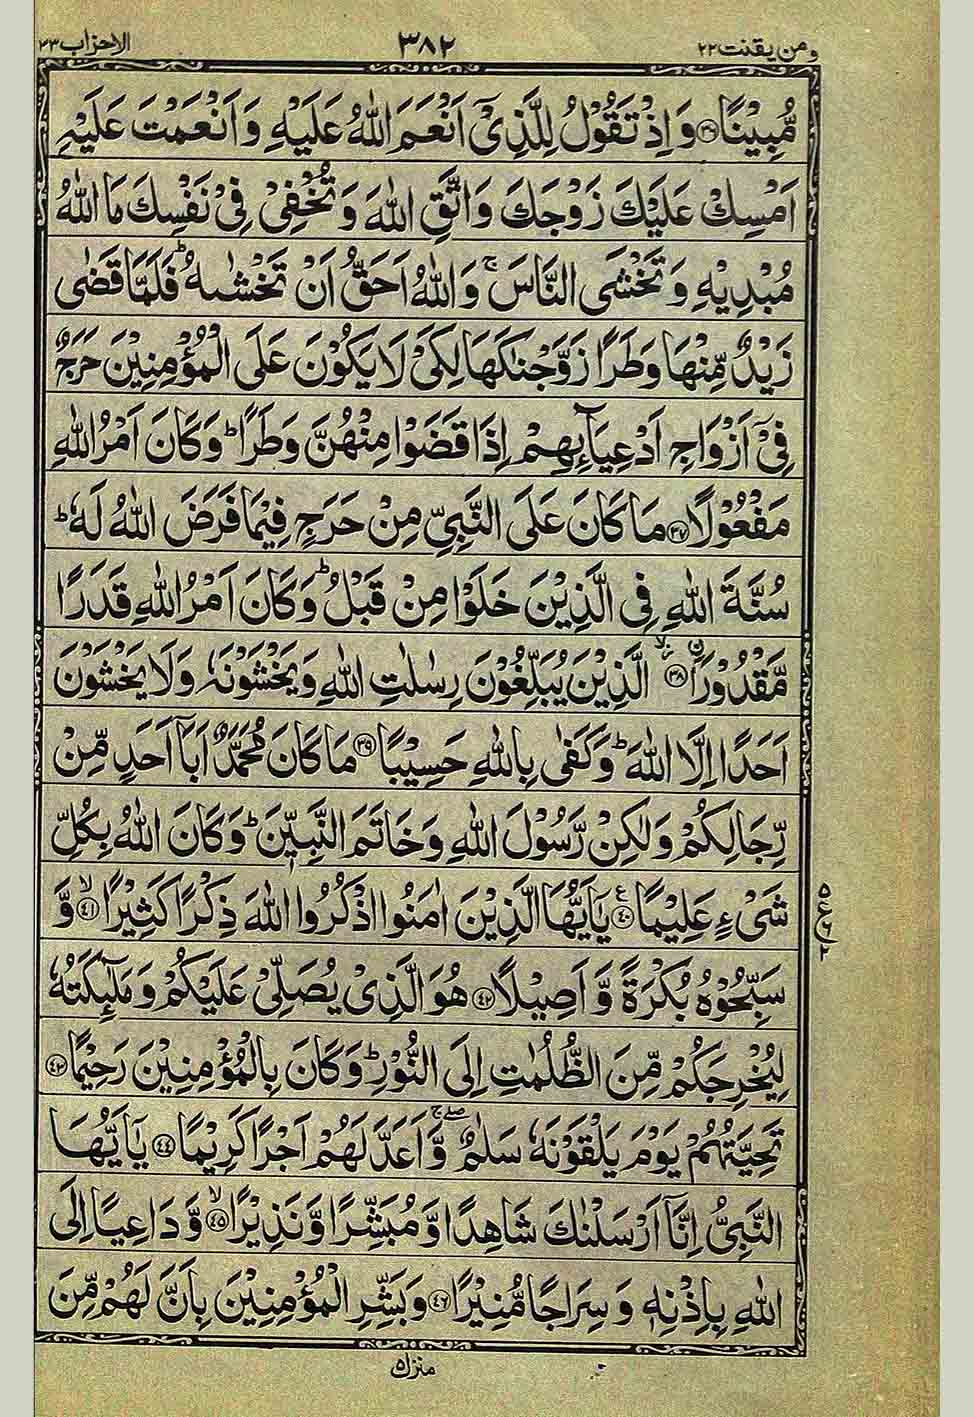 ومن يقنت ٢٢ ٣٨٢ الاحزاب ٣٣
مُّبِيْنًا ﴿٣٦﴾ وَ اِذْ تَقُوْلُ لِلَّذِيْٓ اَنْعَمَ اللّٰهُ عَلَيْهِ وَ اَنْعَمْتَ عَلَيْهِ
اَمْسِكْ عَلَيْكَ زَوْجَكَ وَ اتَّقِ اللّٰهَ وَ تُخْفِيْ فِيْ نَفْسِكَ مَا اللّٰهُ
مُبْدِيْهِ وَ تَخْشَى النَّاسَ ۚ وَ اللّٰهُ اَحَقُّ اَنْ تَخْشٰىهُ ؕ فَلَمَّا قَضٰى
زَيْدٌ مِّنْهَا وَطَرًا زَوَّجْنٰكَهَا لِكَيْ لَا يَكُوْنَ عَلَى الْمُؤْمِنِيْنَ حَرَجٌ
فِيْٓ اَزْوَاجِ اَدْعِيَآئِهِمْ اِذَا قَضَوْا مِنْهُنَّ وَطَرًا ؕ وَ كَانَ اَمْرُ اللّٰهِ
مَفْعُوْلًا ﴿٣٧﴾ مَا كَانَ عَلَى النَّبِيِّ مِنْ حَرَجٍ فِيْمَا فَرَضَ اللّٰهُ لَهٗ ؕ
سُنَّةَ اللّٰهِ فِي الَّذِيْنَ خَلَوْا مِنْ قَبْلُ ؕ وَ كَانَ اَمْرُ اللّٰهِ قَدَرًا
مَّقْدُوْرَا ﴿٣٨﴾ الَّذِيْنَ يُبَلِّغُوْنَ رِسٰلٰتِ اللّٰهِ وَ يَخْشَوْنَهٗ وَ لَا يَخْشَوْنَ
اَحَدًا اِلَّا اللّٰهَ ؕ وَ كَفٰى بِاللّٰهِ حَسِيْبًا ﴿٣٩﴾ مَا كَانَ مُحَمَّدٌ اَبَآ اَحَدٍ مِّنْ
رِّجَالِكُمْ وَ لٰكِنْ رَّسُوْلَ اللّٰهِ وَ خَاتَمَ النَّبِيّٖنَ ؕ وَ كَانَ اللّٰهُ بِكُلِّ
شَيْءٍ عَلِيْمًا ﴿٤٠﴾ يٰٓاَيُّهَا الَّذِيْنَ اٰمَنُوا اذْكُرُوا اللّٰهَ ذِكْرًا كَثِيْرًا ﴿٤١﴾ وَّ
سَبِّحُوْهُ بُكْرَةً وَّ اَصِيْلًا ﴿٤٢﴾ هُوَ الَّذِيْ يُصَلِّيْ عَلَيْكُمْ وَ مَلٰٓئِكَتُهٗ
لِيُخْرِجَكُمْ مِّنَ الظُّلُمٰتِ اِلَى النُّوْرِ ؕ وَ كَانَ بِالْمُؤْمِنِيْنَ رَحِيْمًا ﴿٤٣﴾
تَحِيَّتُهُمْ يَوْمَ يَلْقَوْنَهٗ سَلٰمٌ ۖۚ وَّ اَعَدَّ لَهُمْ اَجْرًا كَرِيْمًا ﴿٤٤﴾ يٰٓاَيُّهَا
النَّبِيُّ اِنَّآ اَرْسَلْنٰكَ شَاهِدًا وَّ مُبَشِّرًا وَّ نَذِيْرًا ﴿٤٥﴾ وَّ دَاعِيًا اِلَى
اللّٰهِ بِاِذْنِهٖ وَ سِرَاجًا مُّنِيْرًا ﴿٤٦﴾ وَ بَشِّرِ الْمُؤْمِنِيْنَ بِاَنَّ لَهُمْ مِّنَ
منزل ٥